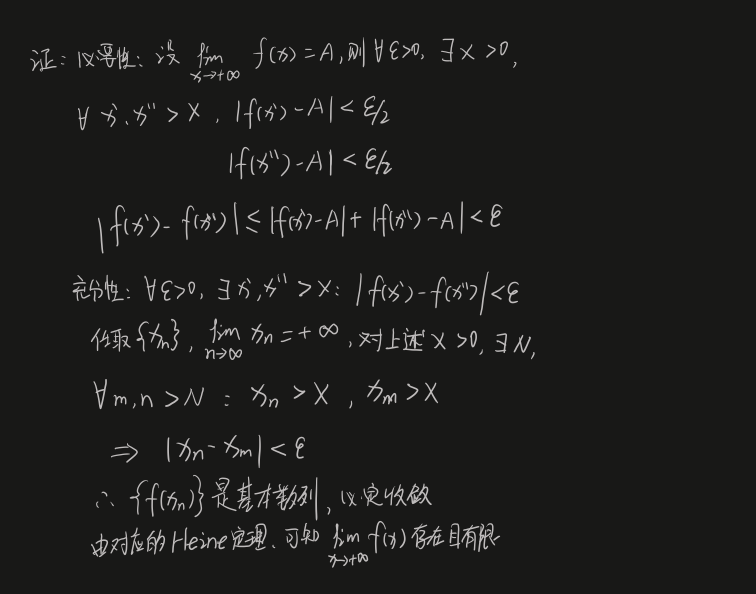 证：必要性：设 lim_{x→+∞} f(x) = A, 则 ∀ε>0, ∃X>0,
∀x', x''>X, |f(x')-A|<ε/2
|f(x'')-A|<ε/2
|f(x')-f(x'')|≤|f(x')-A|+|f(x'')-A|<ε
充分性：∀ε>0, ∃x', x''>X: |f(x')-f(x'')|<ε
任取{xn}, lim_{n→∞} xn=+∞, 对上述X>0, ∃N,
∀m,n>N: xn>X, xm>X
⇒ |xn-xm|<ε
∴ {f(xn)}是基本数列, 必定收敛
由对应的Heine定理、可知 lim_{x→+∞} f(x) 存在且有限